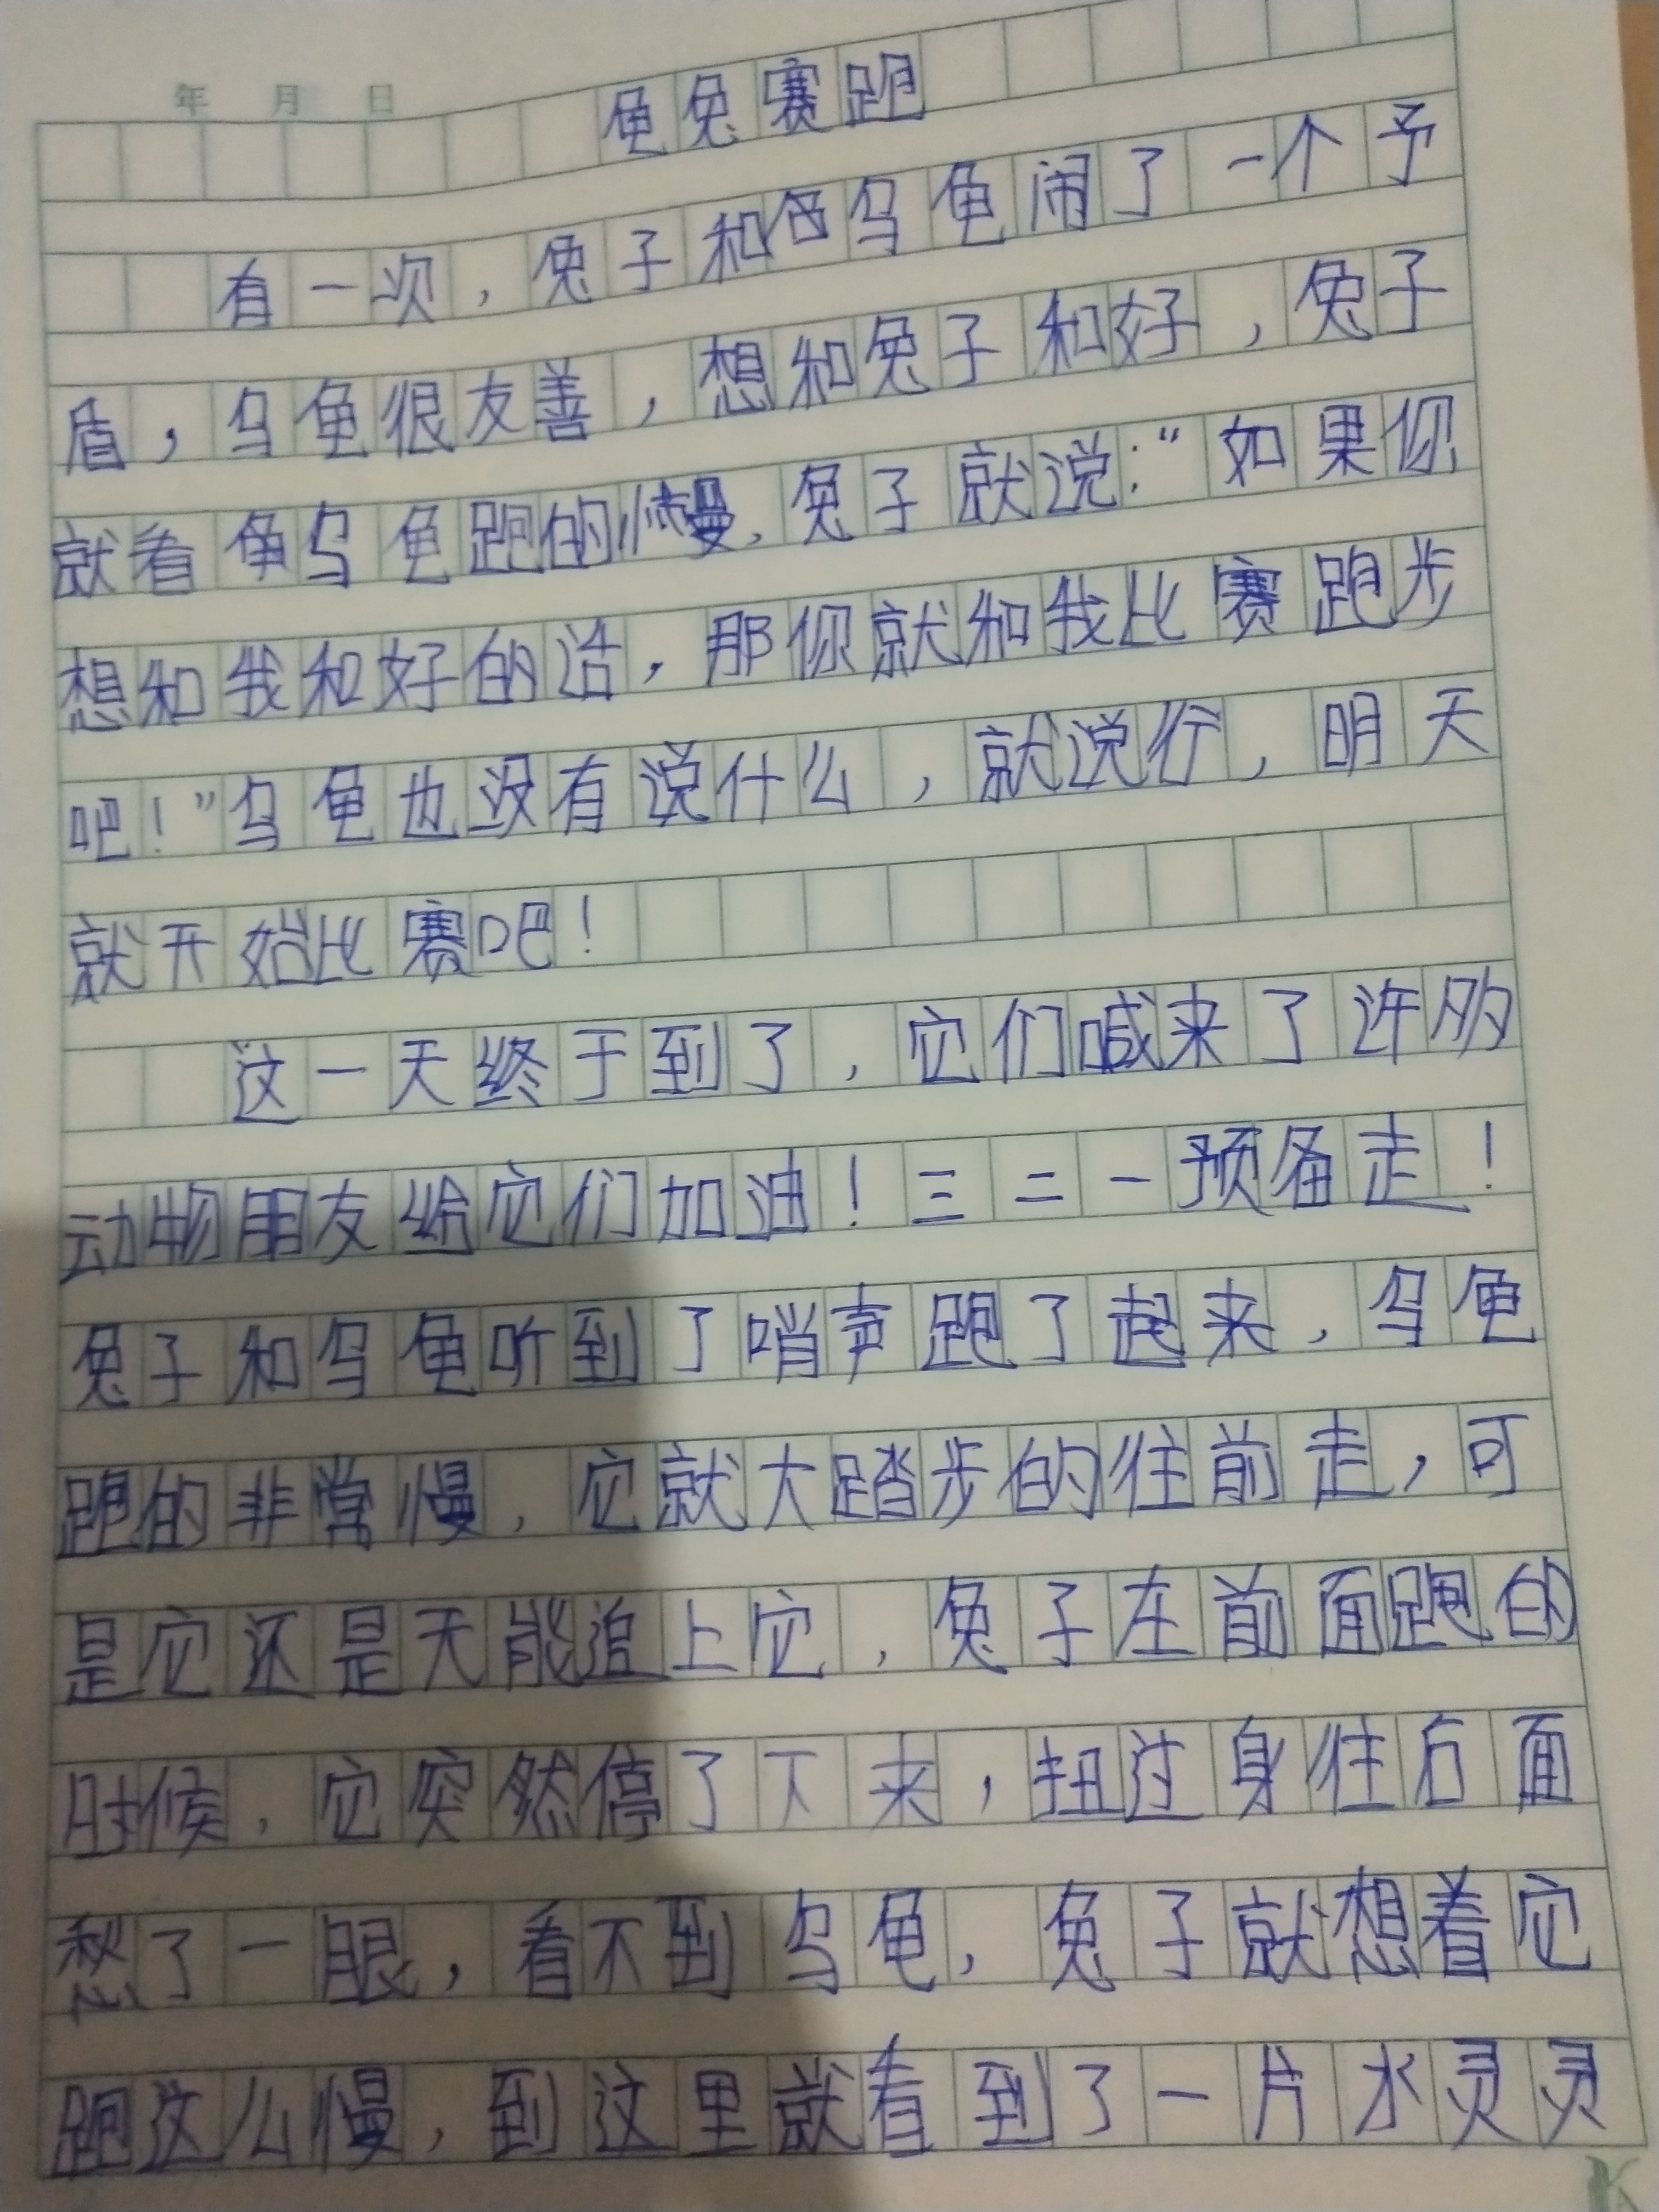 年 月 日
龟兔赛跑
有一次，兔子和乌龟闹了一个予
盾，乌龟很友善，想和兔子和好，兔子
就看乌龟跑的慢，兔子就说：“如果你
想和我和好的话，那你就和我比赛跑步
吧！”乌龟也没有说什么，就说行，明天
就开始比赛吧！
这一天终于到了，它们喊来了许多
动物朋友给它们加油！三二一预备走！
兔子和乌龟听到了哨声跑了起来，乌龟
跑的非常慢，它就大踏步的往前走，可
是它还是天能追上它，兔子在前面跑的
时候，它突然停了下来，扭过身往后面
愁了一眼，看不到乌龟，兔子就想着它
跑这么慢，到这里就看到了一片水灵灵